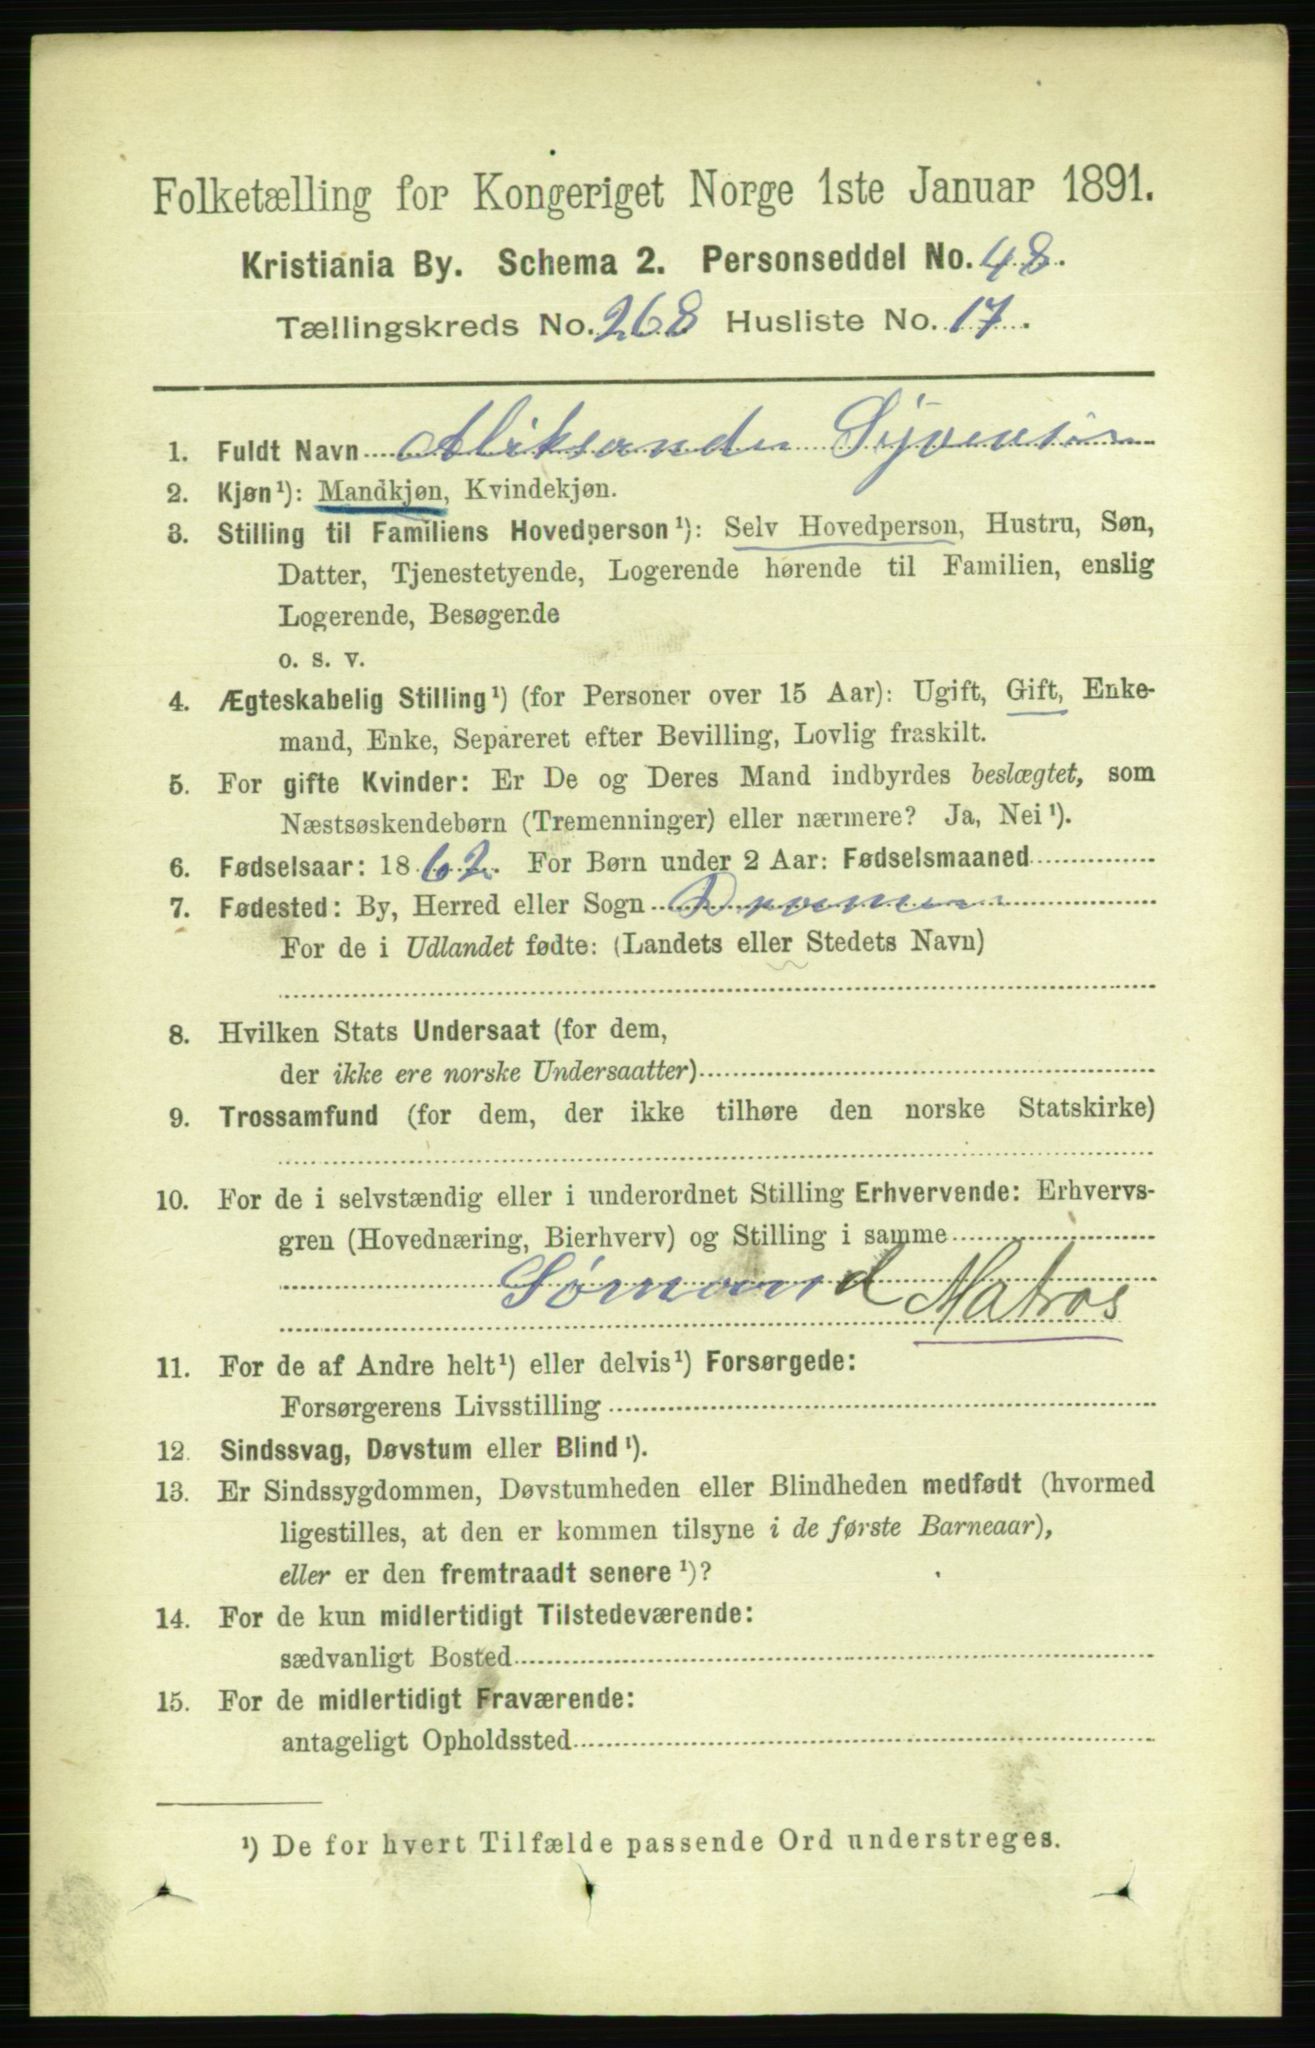 Folketælling for Kongeriget Norge 1ste Januar 1891.
Kristiania By. Schema 2. Personseddel No. 48.
Tællingskreds No. 268 Husliste No. 17.
1. Fuldt Navn
2. Kjøn¹): Mandkjøn, Kvindekjøn.
3. Stilling til Familiens Hovedperson¹): Selv Hovedperson, Hustru, Søn,
Datter, Tjenestetyende, Logerende hørende til Familien, enslig
Logerende, Besøgende
o. s. v.
4. Ægteskabelig Stilling¹) (for Personer over 15 Aar): Ugift, Gift, Enke-
mand, Enke, Separeret efter Bevilling, Lovlig fraskilt.
5. For gifte Kvinder: Er De og Deres Mand indbyrdes beslægtet, som
Næstsøskendebørn (Tremenninger) eller nærmere? Ja, Nei¹).
6. Fødselsaar: 1862. For Børn under 2 Aar: Fødselsmaaned
7. Fødested: By, Herred eller Sogn
For de i Udlandet fødte: (Landets eller Stedets Navn)
8. Hvilken Stats Undersaat (for dem,
der ikke ere norske Undersaatter)
9. Trossamfund (for dem, der ikke tilhøre den norske Statskirke)
10. For de i selvstændig eller i underordnet Stilling Erhvervende: Erhvervs-
gren (Hovednæring, Bierhverv) og Stilling i samme
Sømand Matros
11. For de af Andre helt¹) eller delvis¹) Forsørgede:
Forsørgerens Livsstilling
12. Sindssvag, Døvstum eller Blind¹).
13. Er Sindssygdommen, Døvstumheden eller Blindheden medfødt (hvormed
ligestilles, at den er kommen tilsyne i de første Barneaar),
eller er den fremtraadt senere¹)?
14. For de kun midlertidigt Tilstedeværende:
sædvanligt Bosted
15. For de midlertidigt Fraværende:
antageligt Opholdssted
¹) De for hvert Tilfælde passende Ord understreges.